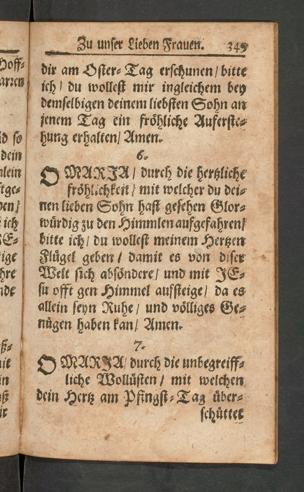 Zu unser Lieben Frauen. 345
dir am Oster-Tag erschunen/ bitte
ich/ du wollest mir ingleichem bey
demselbigen deinem liebsten Sohn an
jenem Tag ein fröhliche Aufferste-
hung erhalten/ Amen.
6.
O MARJA/ durch die hertzliche
fröhlichkeit/ mit welcher du dei-
nen lieben Sohn hast gesehen Glor-
würdig zu den Himmlen auffgefahren/
bitte ich/ du wollest meinem Hertzen
Flügel geben/ damit es von diser
Welt sich absöndere/ und mit JE-
su offt gen Himmel auffsteige/ da es
allein seyn Ruhe/ und völliges Ge-
nügen haben kan/ Amen.
7.
O MARJA/ durch die unbegreiff-
liche Wollüsten/ mit welchen
dein Hertz am Pfingst-Tag über-
schüttet